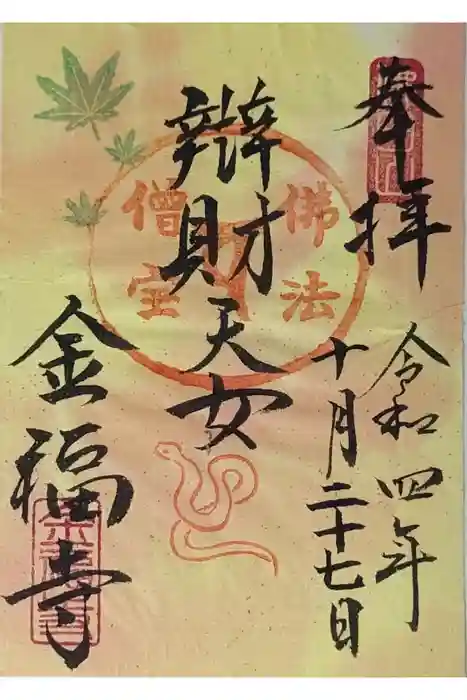 奉拝
令和四年
十月二十七日
佛法
僧宝
辦財天女
金福寿